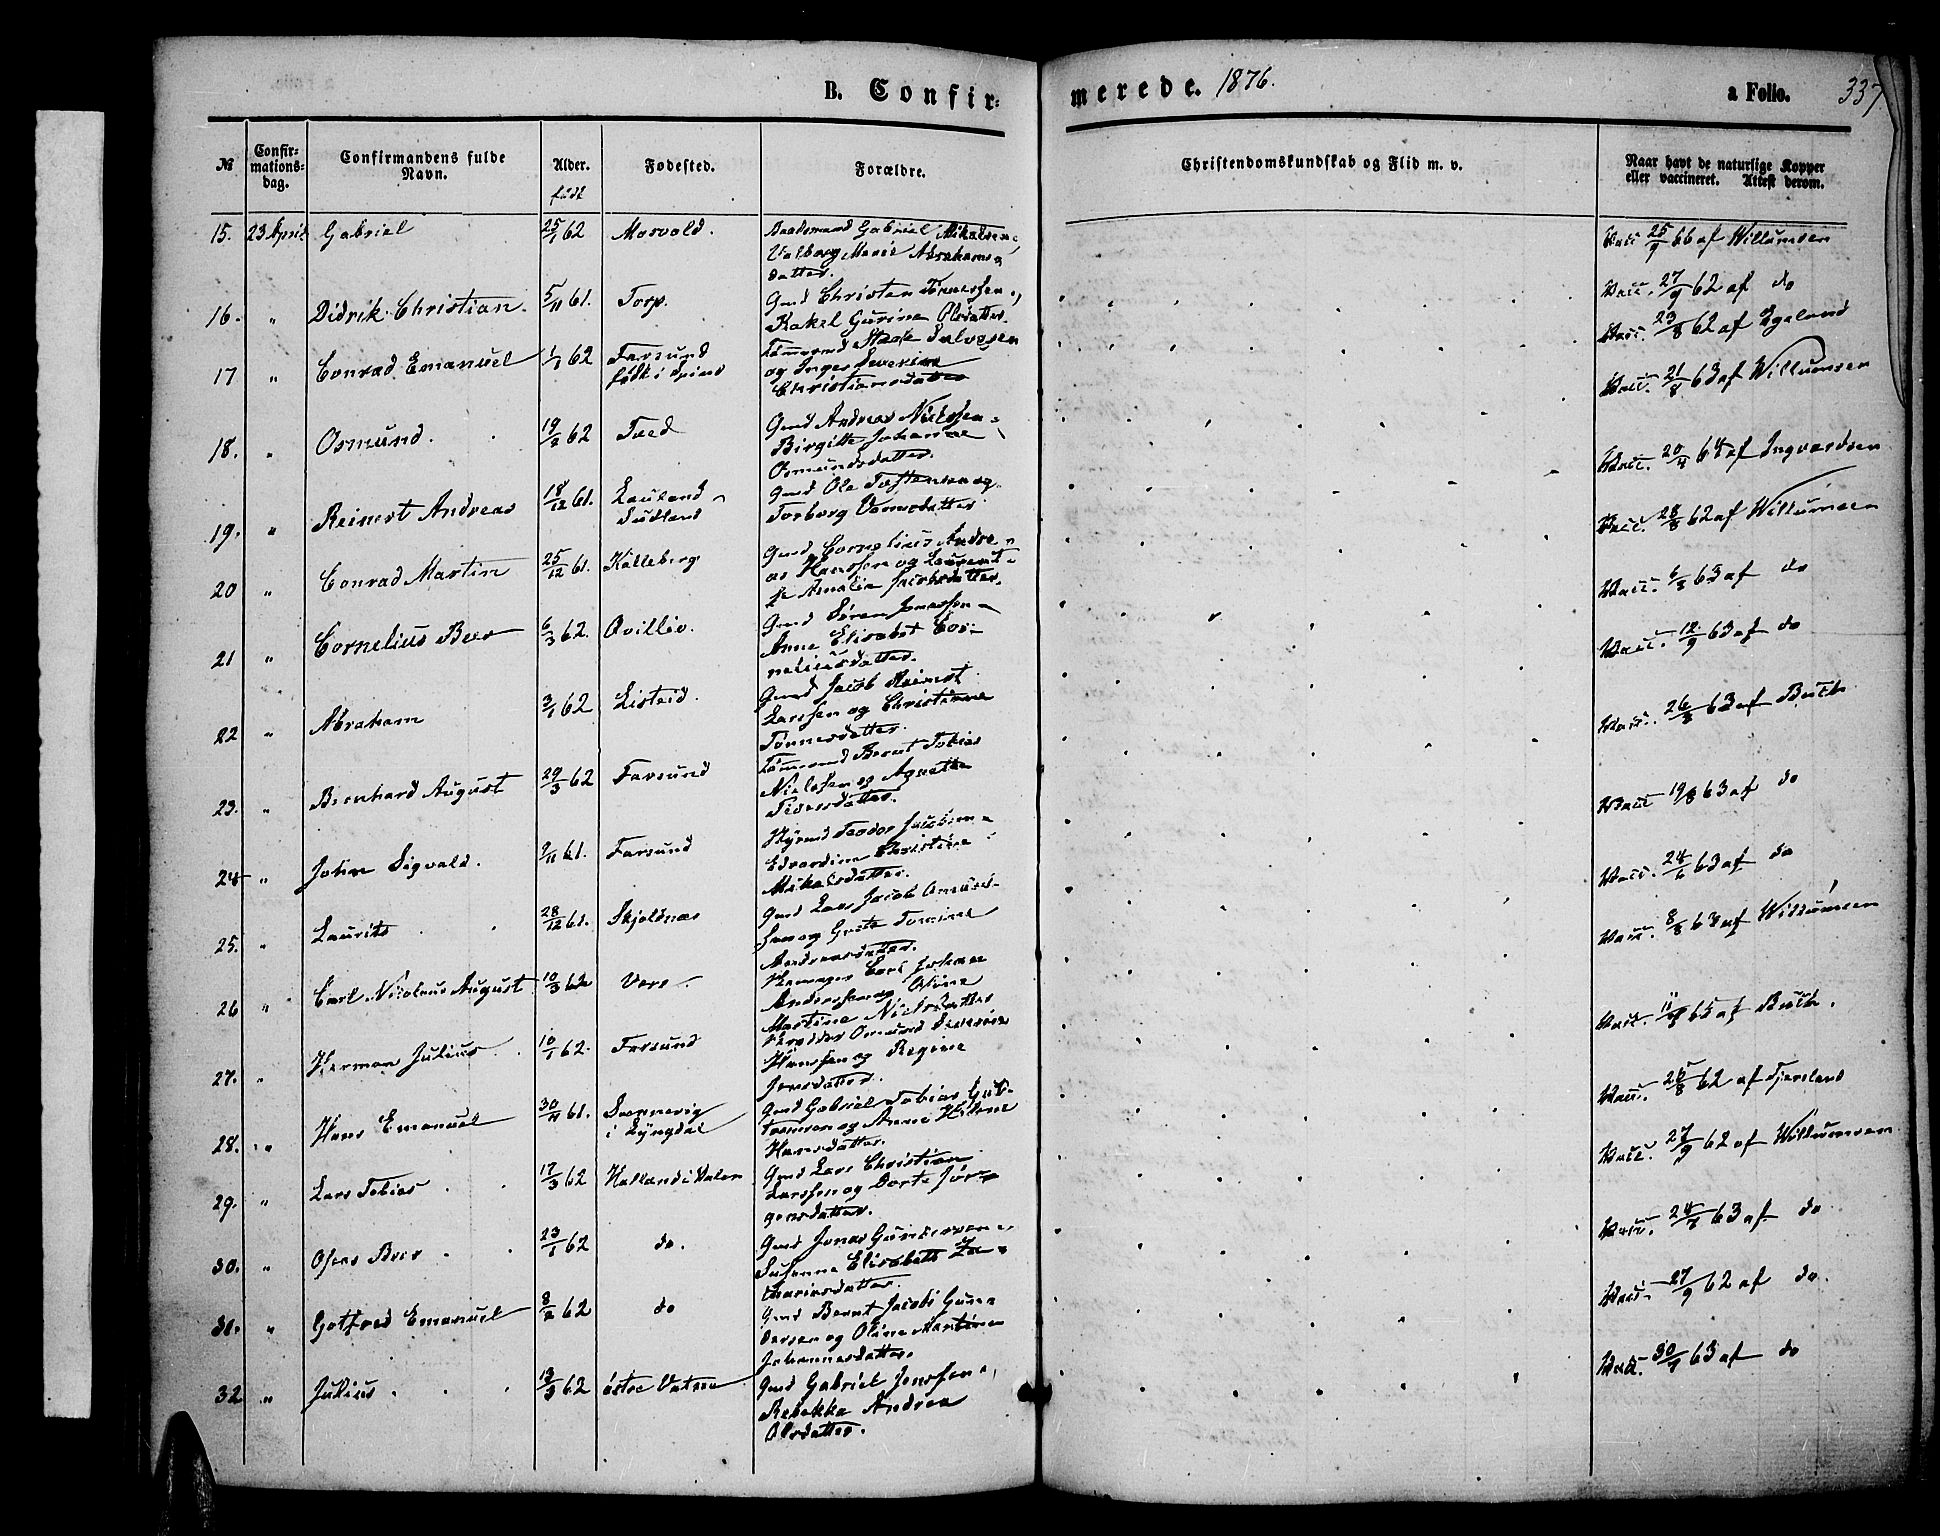 B. Confir-
merede. 1876.
a Folio. 337
№
Confir-
mations-
dag.
Confirmandens fulde
Navn.
Alder.
født
Fødested.
Forældre.
Christendomskundskab og Flid m. v.
Naar havt de naturlige Kopper
eller vaccineret. Attest derom.
15. 23 April Gabriel 25/1 62 Gabriel Mikalsen,
Valborg Marie Abrahams-
datter.
Vacc 25/7 66 af Willumsen
16. " Didrik Christian. 5/11 61. Torp. Gmd Christen Tønnessen,
Rakel Gurine Olsdatter.
Vacc. 27/9 62 af do
17 " Conrad Emanuel 62 Farsund
født i Spind
Salvesen
og Inger Severine
Christiansdatter
Vacc. 23/8 62 af Egeland
18. " Osmund. 19/2 62 Tved Gmd Andreas Nielssen
Birgitte Johanne
Osmundsdatter.
Vacc. 21/8 63 af Willumsen
19. " Reinert Andreas 18/12 61. Lauland
Sudland
Gmd Ole Tostensen og
Torborg
Vacc. 20/4 64 af Ingvardsen
20 " Conrad Martin 25/12 61. Kalleberg Gmd Cornelius Andre-
as Hanssen og Laurent-
ze Amalie Jacobsdatter.
Vacc. 28/8 62 af Willumsen
21 " Cornelius Beer 6/3 62. Qvilliv. Gmd Søren Jonassen
Anne Elisabet Cor-
neliusdatter.
Vacc. 6/8 63 af do
22 " Abraham 3/1 62 Listeid. Gmd Jacob Reinert
Larssen og Christianne
Tønnesdatter.
Vacc. 12/9 63 af do
23. " Bernhard August 29/3 62 Farsund Tømmermd Bernt Tobias
Nielssen og Agnette
Pedersdatter.
Vacc. 26/8 63 af Buch
24 " John Sigvald. 61. Farsund Teodor Jacobsen
Edvardine Christine
Mikalsdatter.
Vacc 19/8 63 af do
25. " Laurits 28/12 61. Skjoldnæs Gmd Lars Jacob
sen og Grete Tomine
Andreasdatter.
Vacc. 24/6 63 af do
26 " Carl Nicolaus August 10/3 62 Vere. Carl Johan
Anderssen og Oline
Martine Nielsdatter
Vacc. 8/8 63 af Willumsen
27. " Herman Julius 10/1 62. Farsund Osmund
Hanssen og Regine
Jensdatter.
Vacc. 65 af Buch.
28. " Hans Emanuel 30/11 61. Svennevig
i Lyngdal
Gmd Gabriel Tobias Gut-
tormsen og Anne Helene
Hansdatter.
Vacc. 26/8 62 af Tjersland
29. " Lars Tobias 17/3 62 Halland i Gmd Lars Christian
Larssen og Dorte Jør-
gensdatter.
Vacc. 27/9 62 af Willumsen
30. " Beer 23/1 62 do. Gmd Jonas Gundersen
Susanne Elisabeth Za-
kariasdatter.
Vacc. 24/7 63 af do
31. " Gotfred Emanuel 8/2 62 do Gmd Bernt Jacob Gun-
dersen og Oline Martine
Johannesdatter.
Vacc. 27/9 62 af do.
32 " Julius 13/3 62 østre Vatne Gmd Gabriel Jenssen,
Rebekka Andrea
Olsdatter.
Vacc. 30/7 63 af do